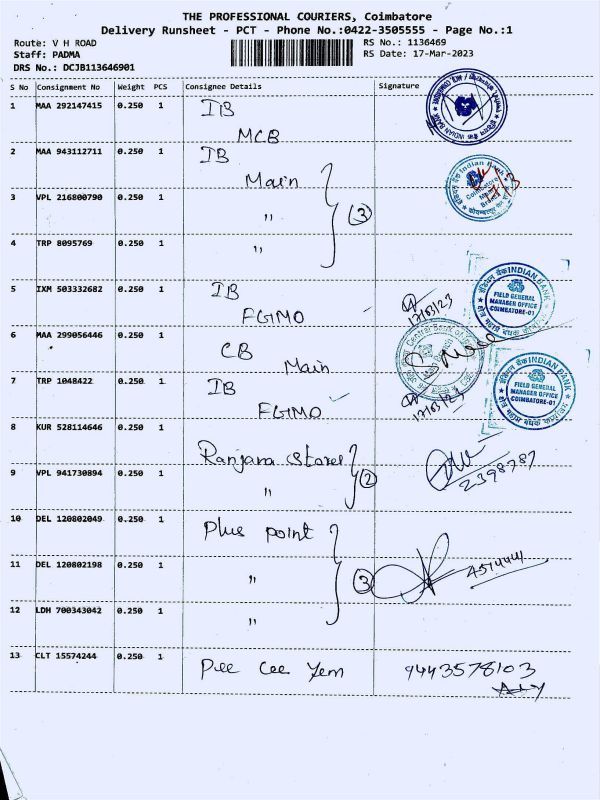 THE PROFESSIONAL COURIERS, Coimbatore
Delivery Runsheet - PCT - Phone No.:0422-3505555 - Page No.:1
Route: V H ROAD RS No.: 1136469
Staff: PADMA RS Date: 17-Mar-2023
DRS No.: DCJB113646901
S No Consignment No Weight PCS Consignee Details Signature
1 MAA 292147415 0.250 1 IB
MCB
2 MAA 943112711 0.250 1 IB
Main
3 VPL 216800790 0.250 1 "
(3)
4 TRP 8095769 0.250 1 "
5 IXM 503332682 0.250 1 IB
FGMO 17/03/23
INDIAN BANK
FIELD GENERAL
MANAGER OFFICE
COIMBATORE-01
6 MAA 299056446 0.250 1 CB
Main
Central Bank of
7 TRP 1048422 0.250 1 IB
FGMO 17/03/23
INDIAN BANK
FIELD GENERAL
MANAGER OFFICE
COIMBATORE-01
8 KUR 528114646 0.250 1 Ranjana Stores
9 VPL 941730894 0.250 1 " (2) 2398787
10 DEL 120802049 0.250 1 Plus point
11 DEL 120802198 0.250 1 " (3)
12 LDH 700343042 0.250 1 "
13 CLT 15574244 0.250 1 Pee Cee Yem 9443578103